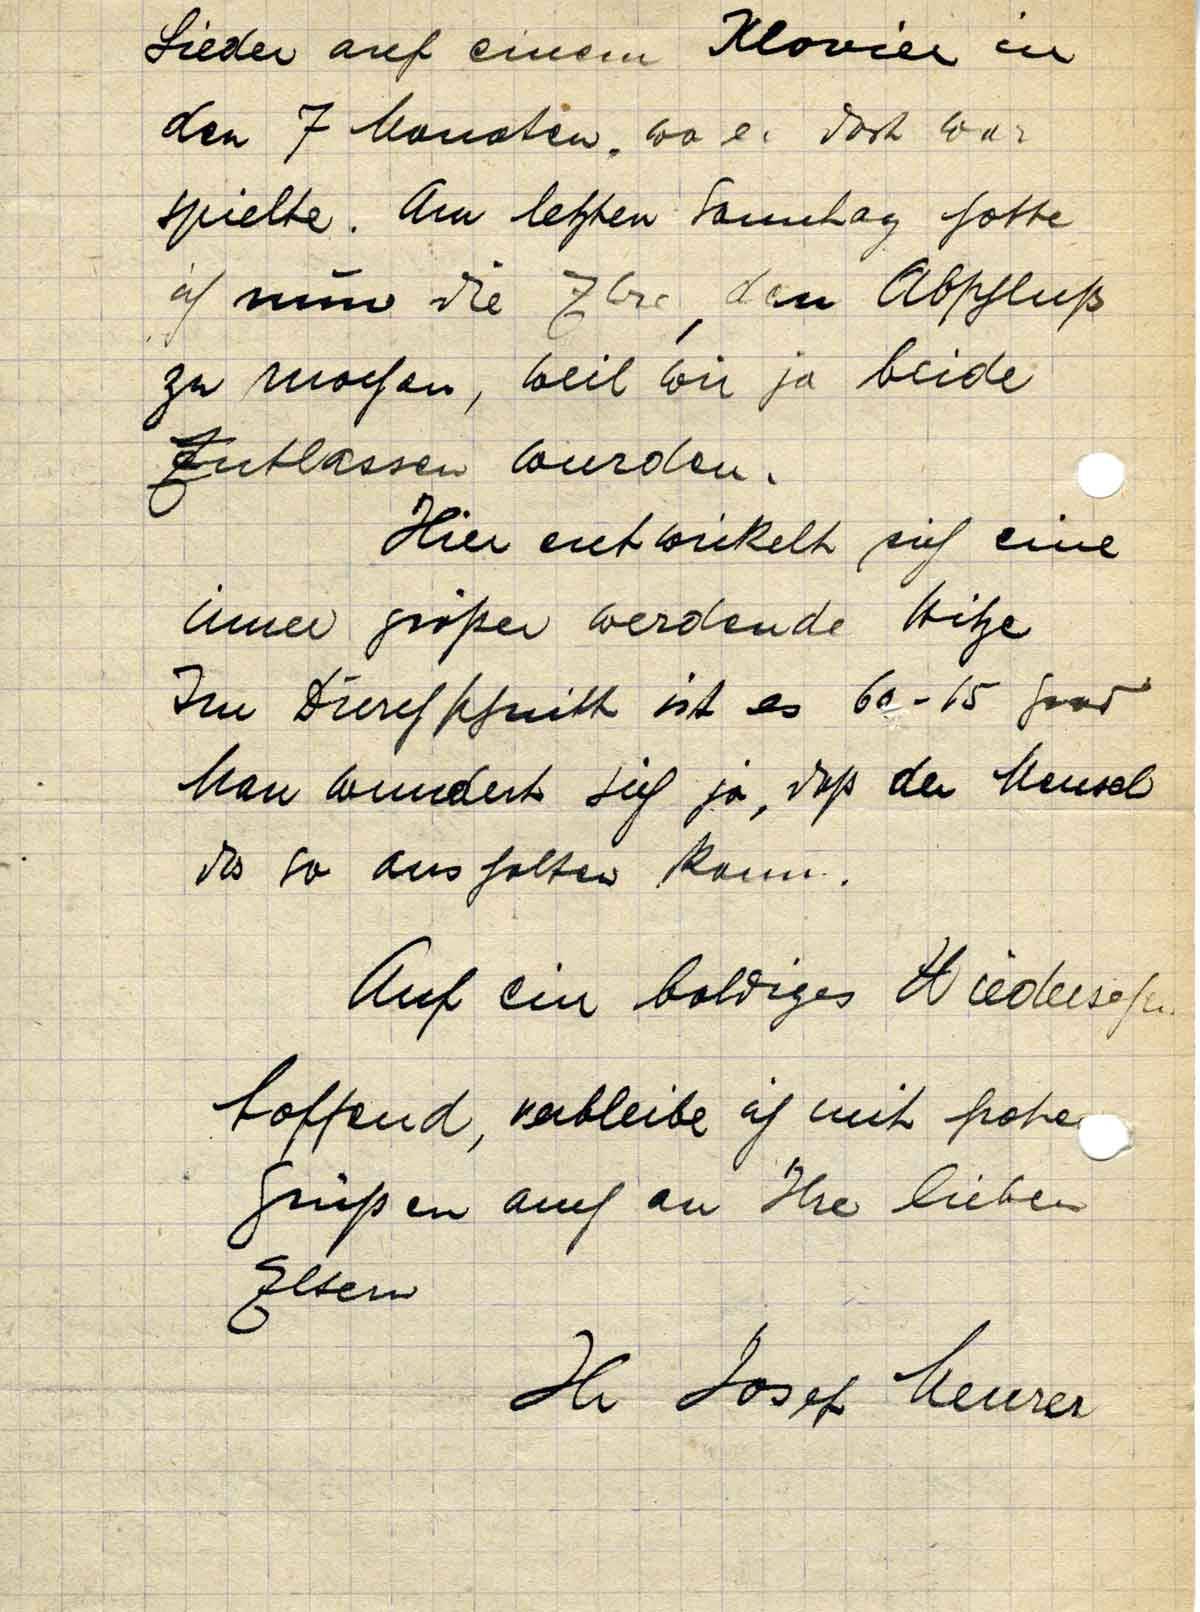 Lieder auf einem Klavier in
den 7 Monaten, wo er dort war
spielte. Am letzten Sonntag hatte
ich nun die Ehre, den Abschluß
zu machen, weil wir ja beide
Entlassen wurden.
Hier entwikelt sich eine
immer größer werdende Hitze
Im Durchschnitt ist es 60-65 Grad
Man wundert sich ja, daß der Mensch
das so aushalten kann.
Auf ein baldiges Wiedersehen
hoffend, verbleibe ich mit frohen
Grüßen auch an Ihre lieben
Eltern
Ihr Josef Meurer